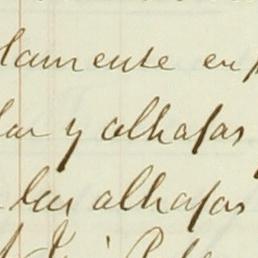 lamente en
lar y alhajas
las alhajas